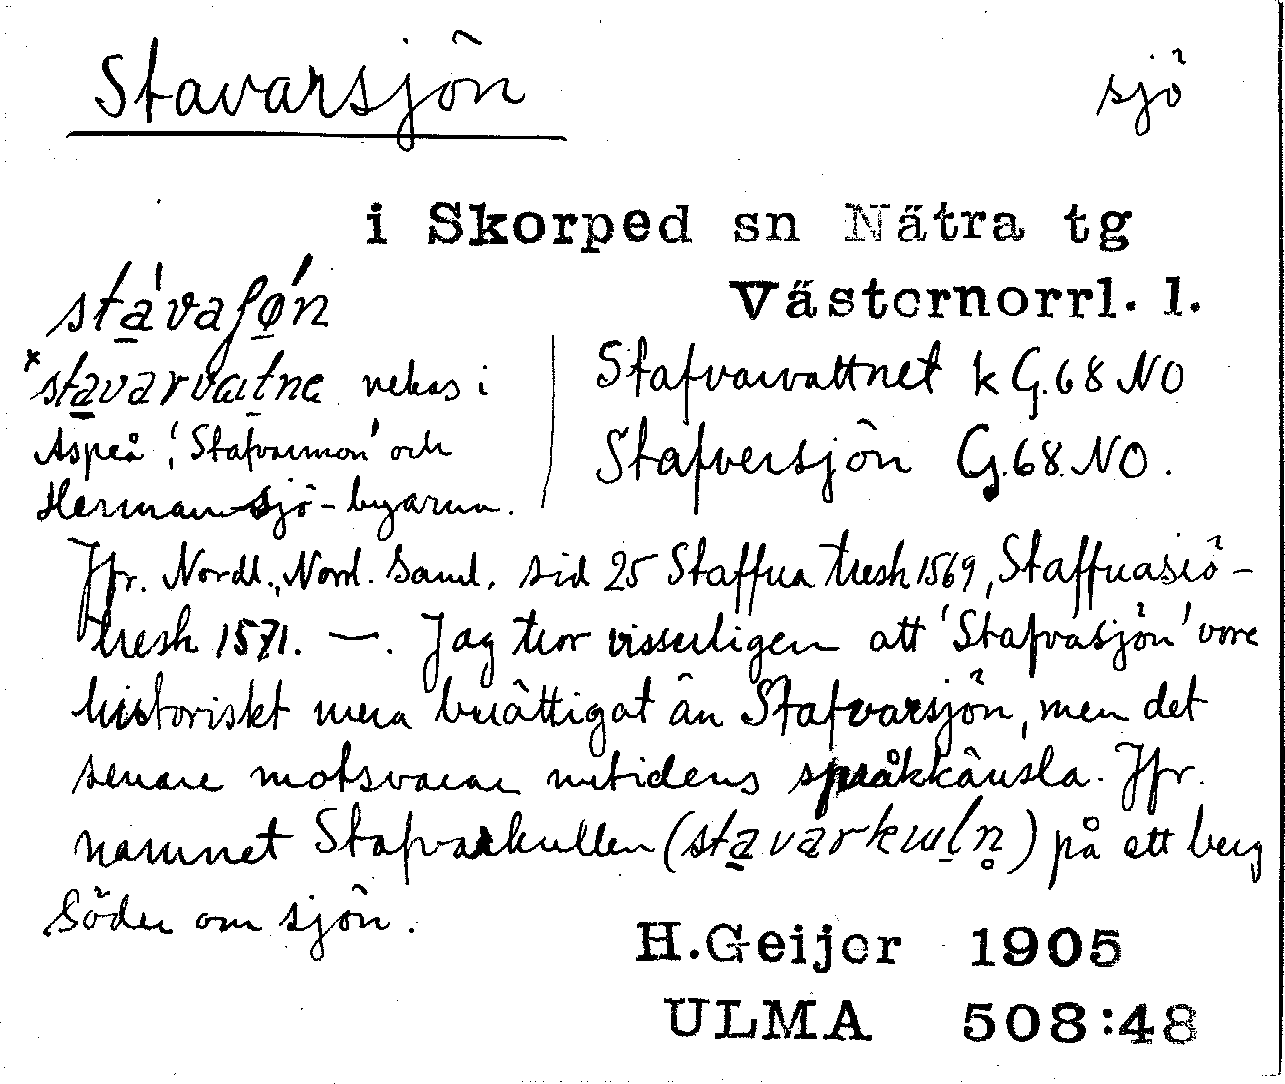 Stavarsjön
sjö
i Skorped sn Nätra tg
Västernorrl. l.
stávaʃǿn
*stavarvatne nekas i
Aspeå, 'Stafvarmon' och
Hermansjö-byarna.
Stafvarvattnet k G.68 NO
Stafversjön G.68 NO.
Jfr. Nordl., Norrl. Saml. sid 25 Staffua tresk 1569, Staffuasiö-
tresk 1571. —. Jag tror visserligen att 'Stafvasjön' vore
historiskt mera berättigat än Stafvarsjön, men det
senare motsvarar nutidens språkkänsla. Jfr.
namnet Stafvarkullen (stavarkuɯln̥) på ett berg
söder om sjön.
H.Geijer 1905
ULMA 508:48